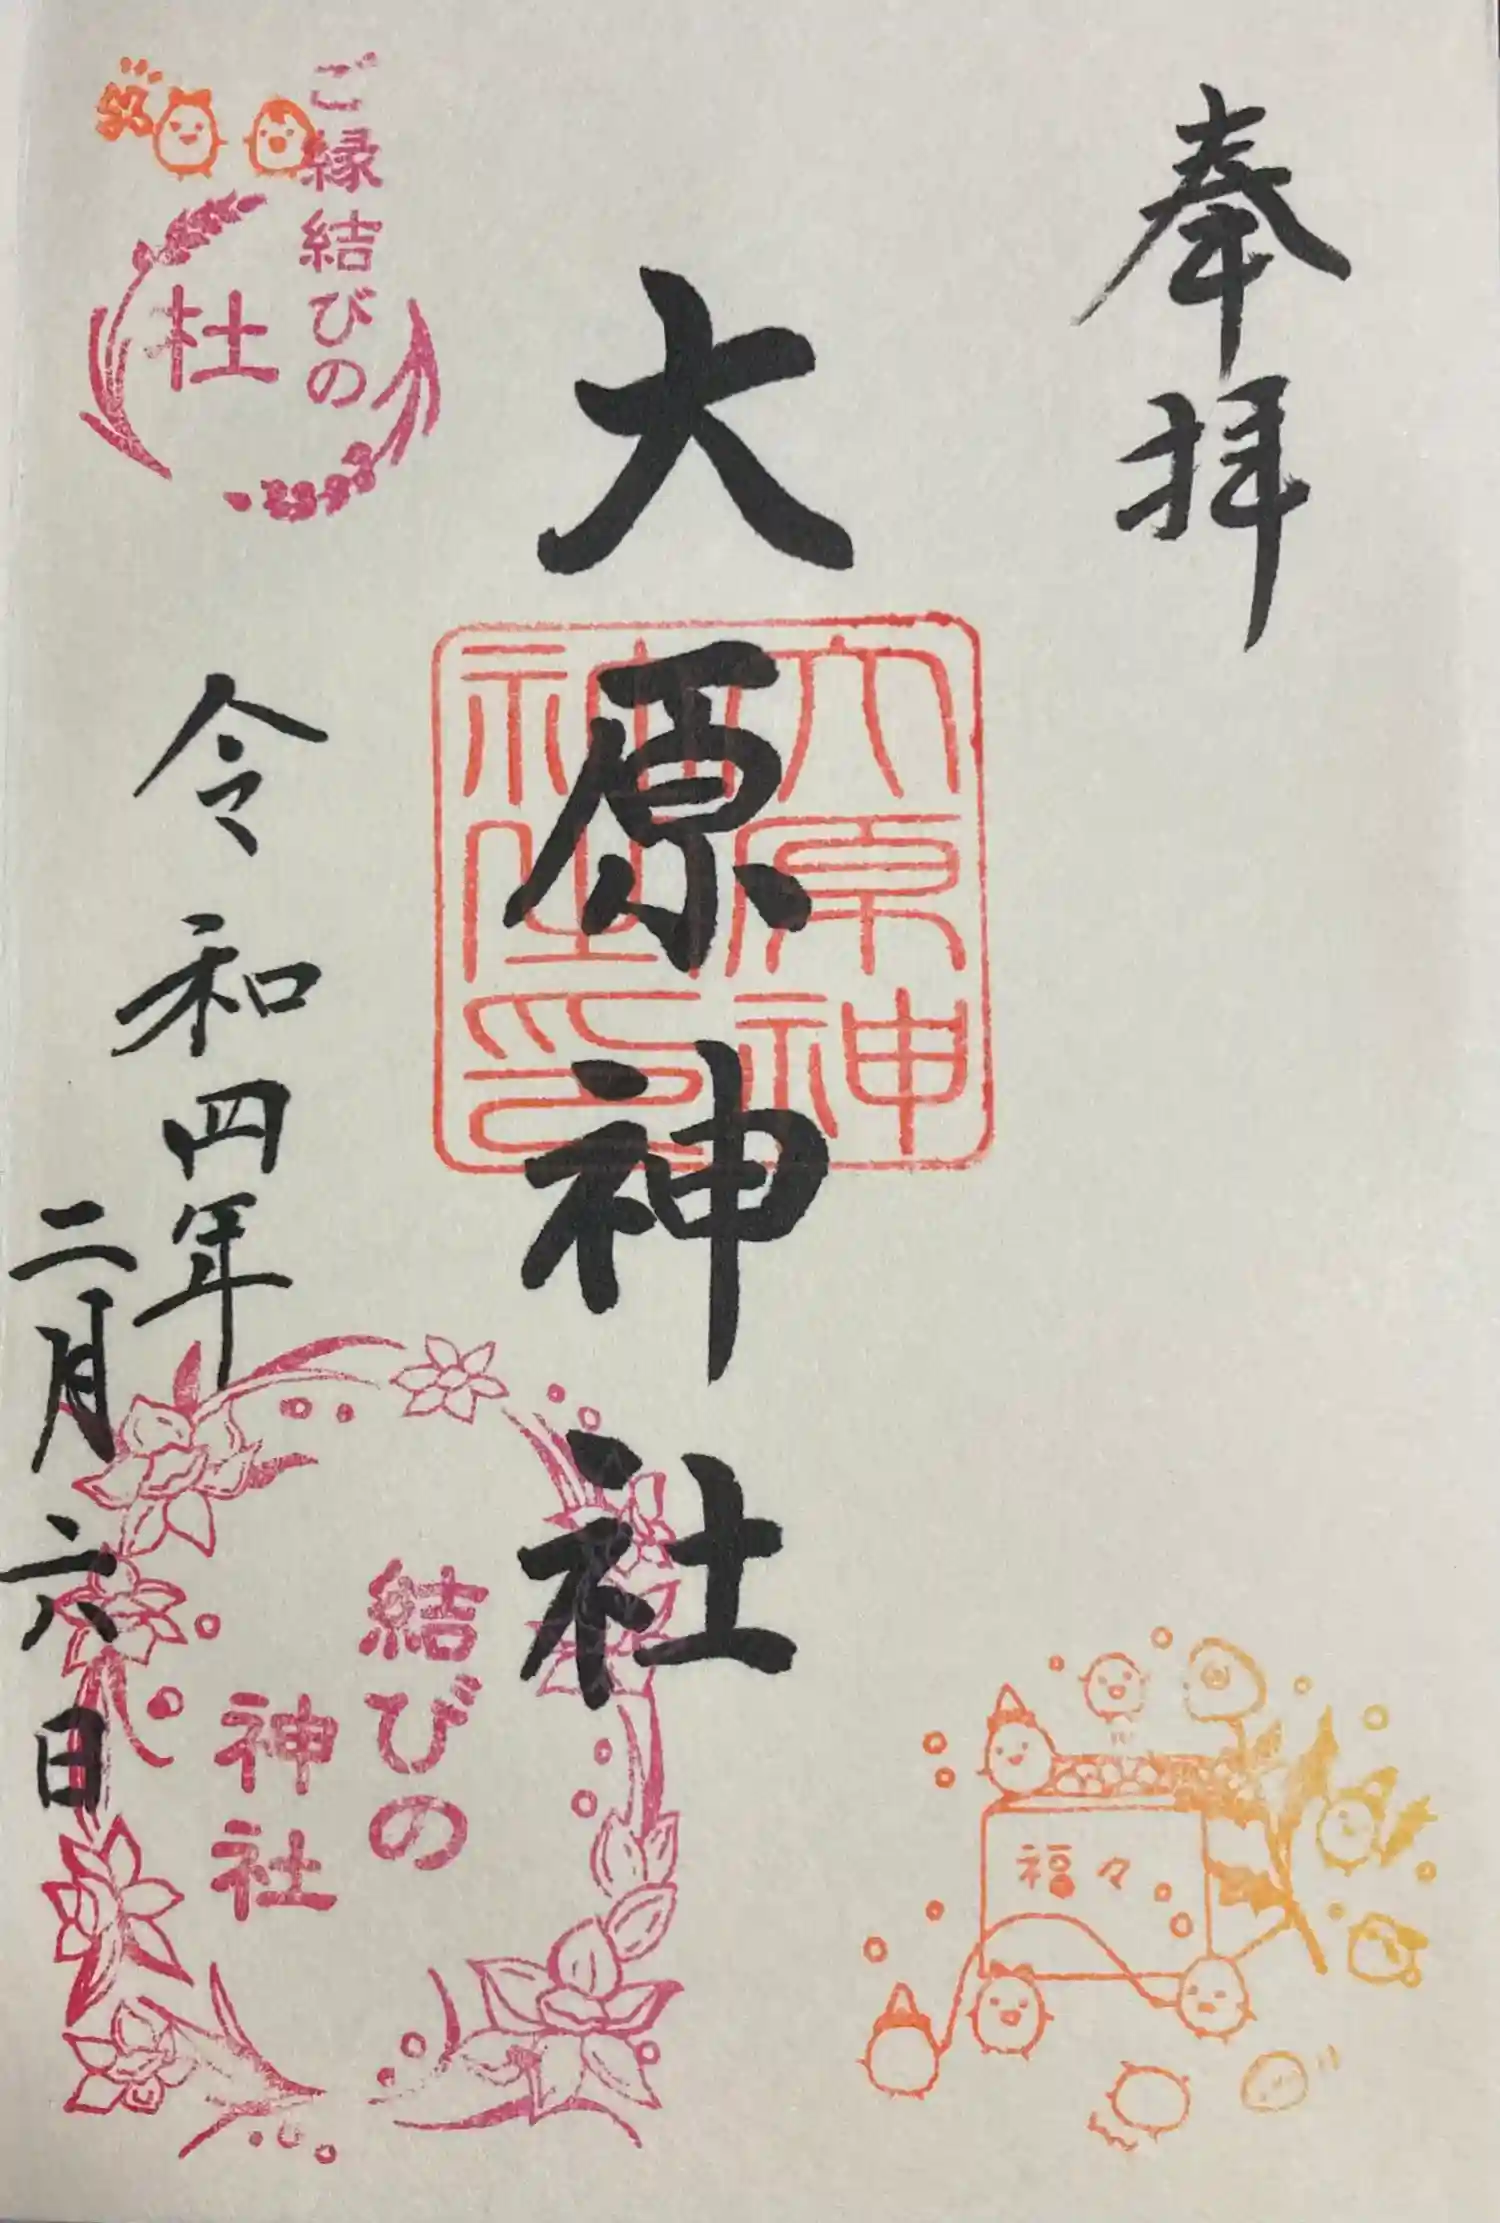 奉拝
大原神社
大原神社印
ご縁結びの
杜
令和四年
二月六日
結びの
神社
福々